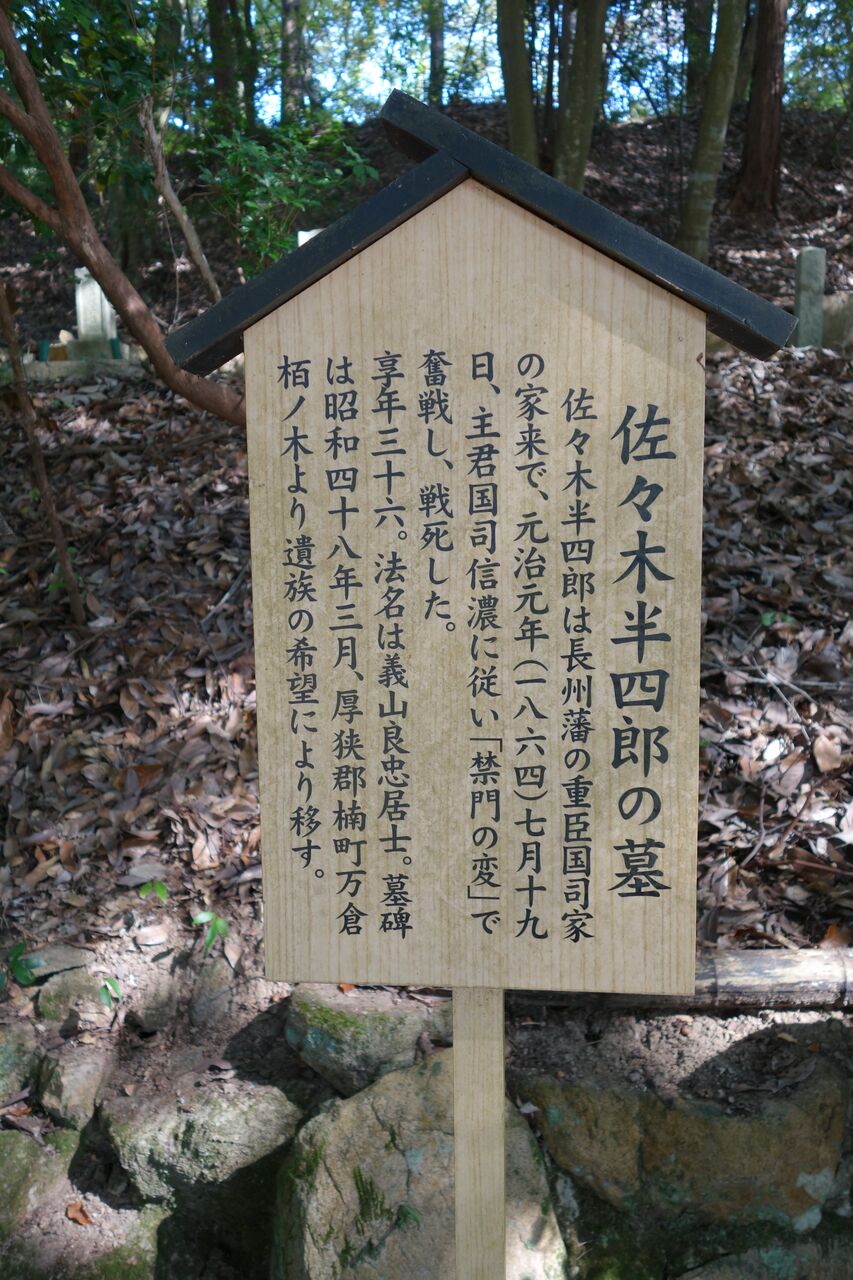 佐々木半四郎の墓
佐々木半四郎は長州藩の重臣国司家
の家来で、元治元年(一八六四)七月十九
日、主君国司信濃に従い「禁門の変」で
奮戦し、戦死した。
享年三十六。法名は義山良忠居士。墓碑
は昭和四十八年三月、厚狭郡楠町万倉
栢ノ木より遺族の希望により移す。